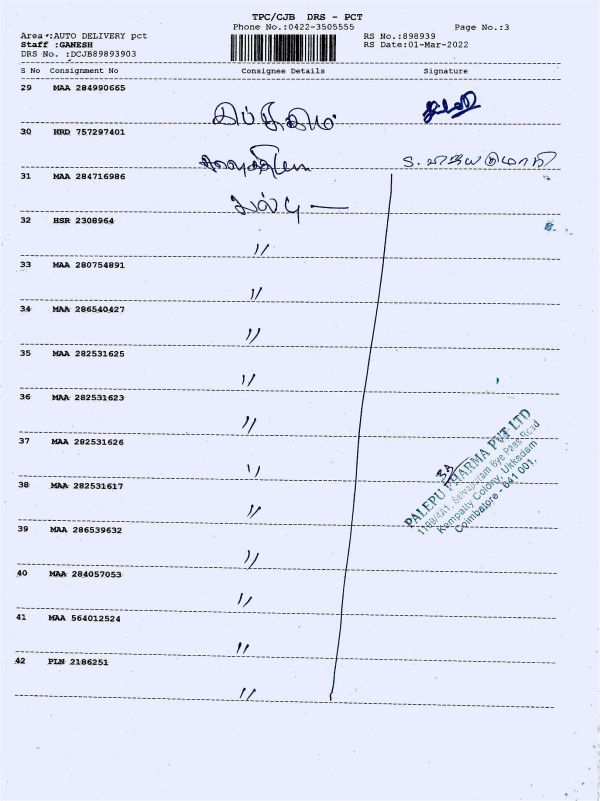 TPC/CJB DRS - PCT
Phone No.:0422-3505555
Page No.:3
Area :AUTO DELIVERY pct
RS No.:898939
Staff :GANESH
RS Date:01-Mar-2022
DRS No. :DCJB89893903
S No Consignment No Consignee Details Signature
29 MAA 284990665
30 HRD 757297401
S. விஜயகுமாரி
31 MAA 284716986
32 HSR 2308964
〃
33 MAA 280754891
〃
34 MAA 286540427
〃
35 MAA 282531625
〃
36 MAA 282531623
〃
37 MAA 282531626
〃
38 MAA 282531617
〃
39 MAA 286539632
〃
40 MAA 284057053
〃
41 MAA 564012524
〃
42 PLN 2186251
〃
PALEPU PHARMA PVT LTD
Bye Pass Road
Kempatty Colony, Ukkadam
Coimbatore - 641 001.